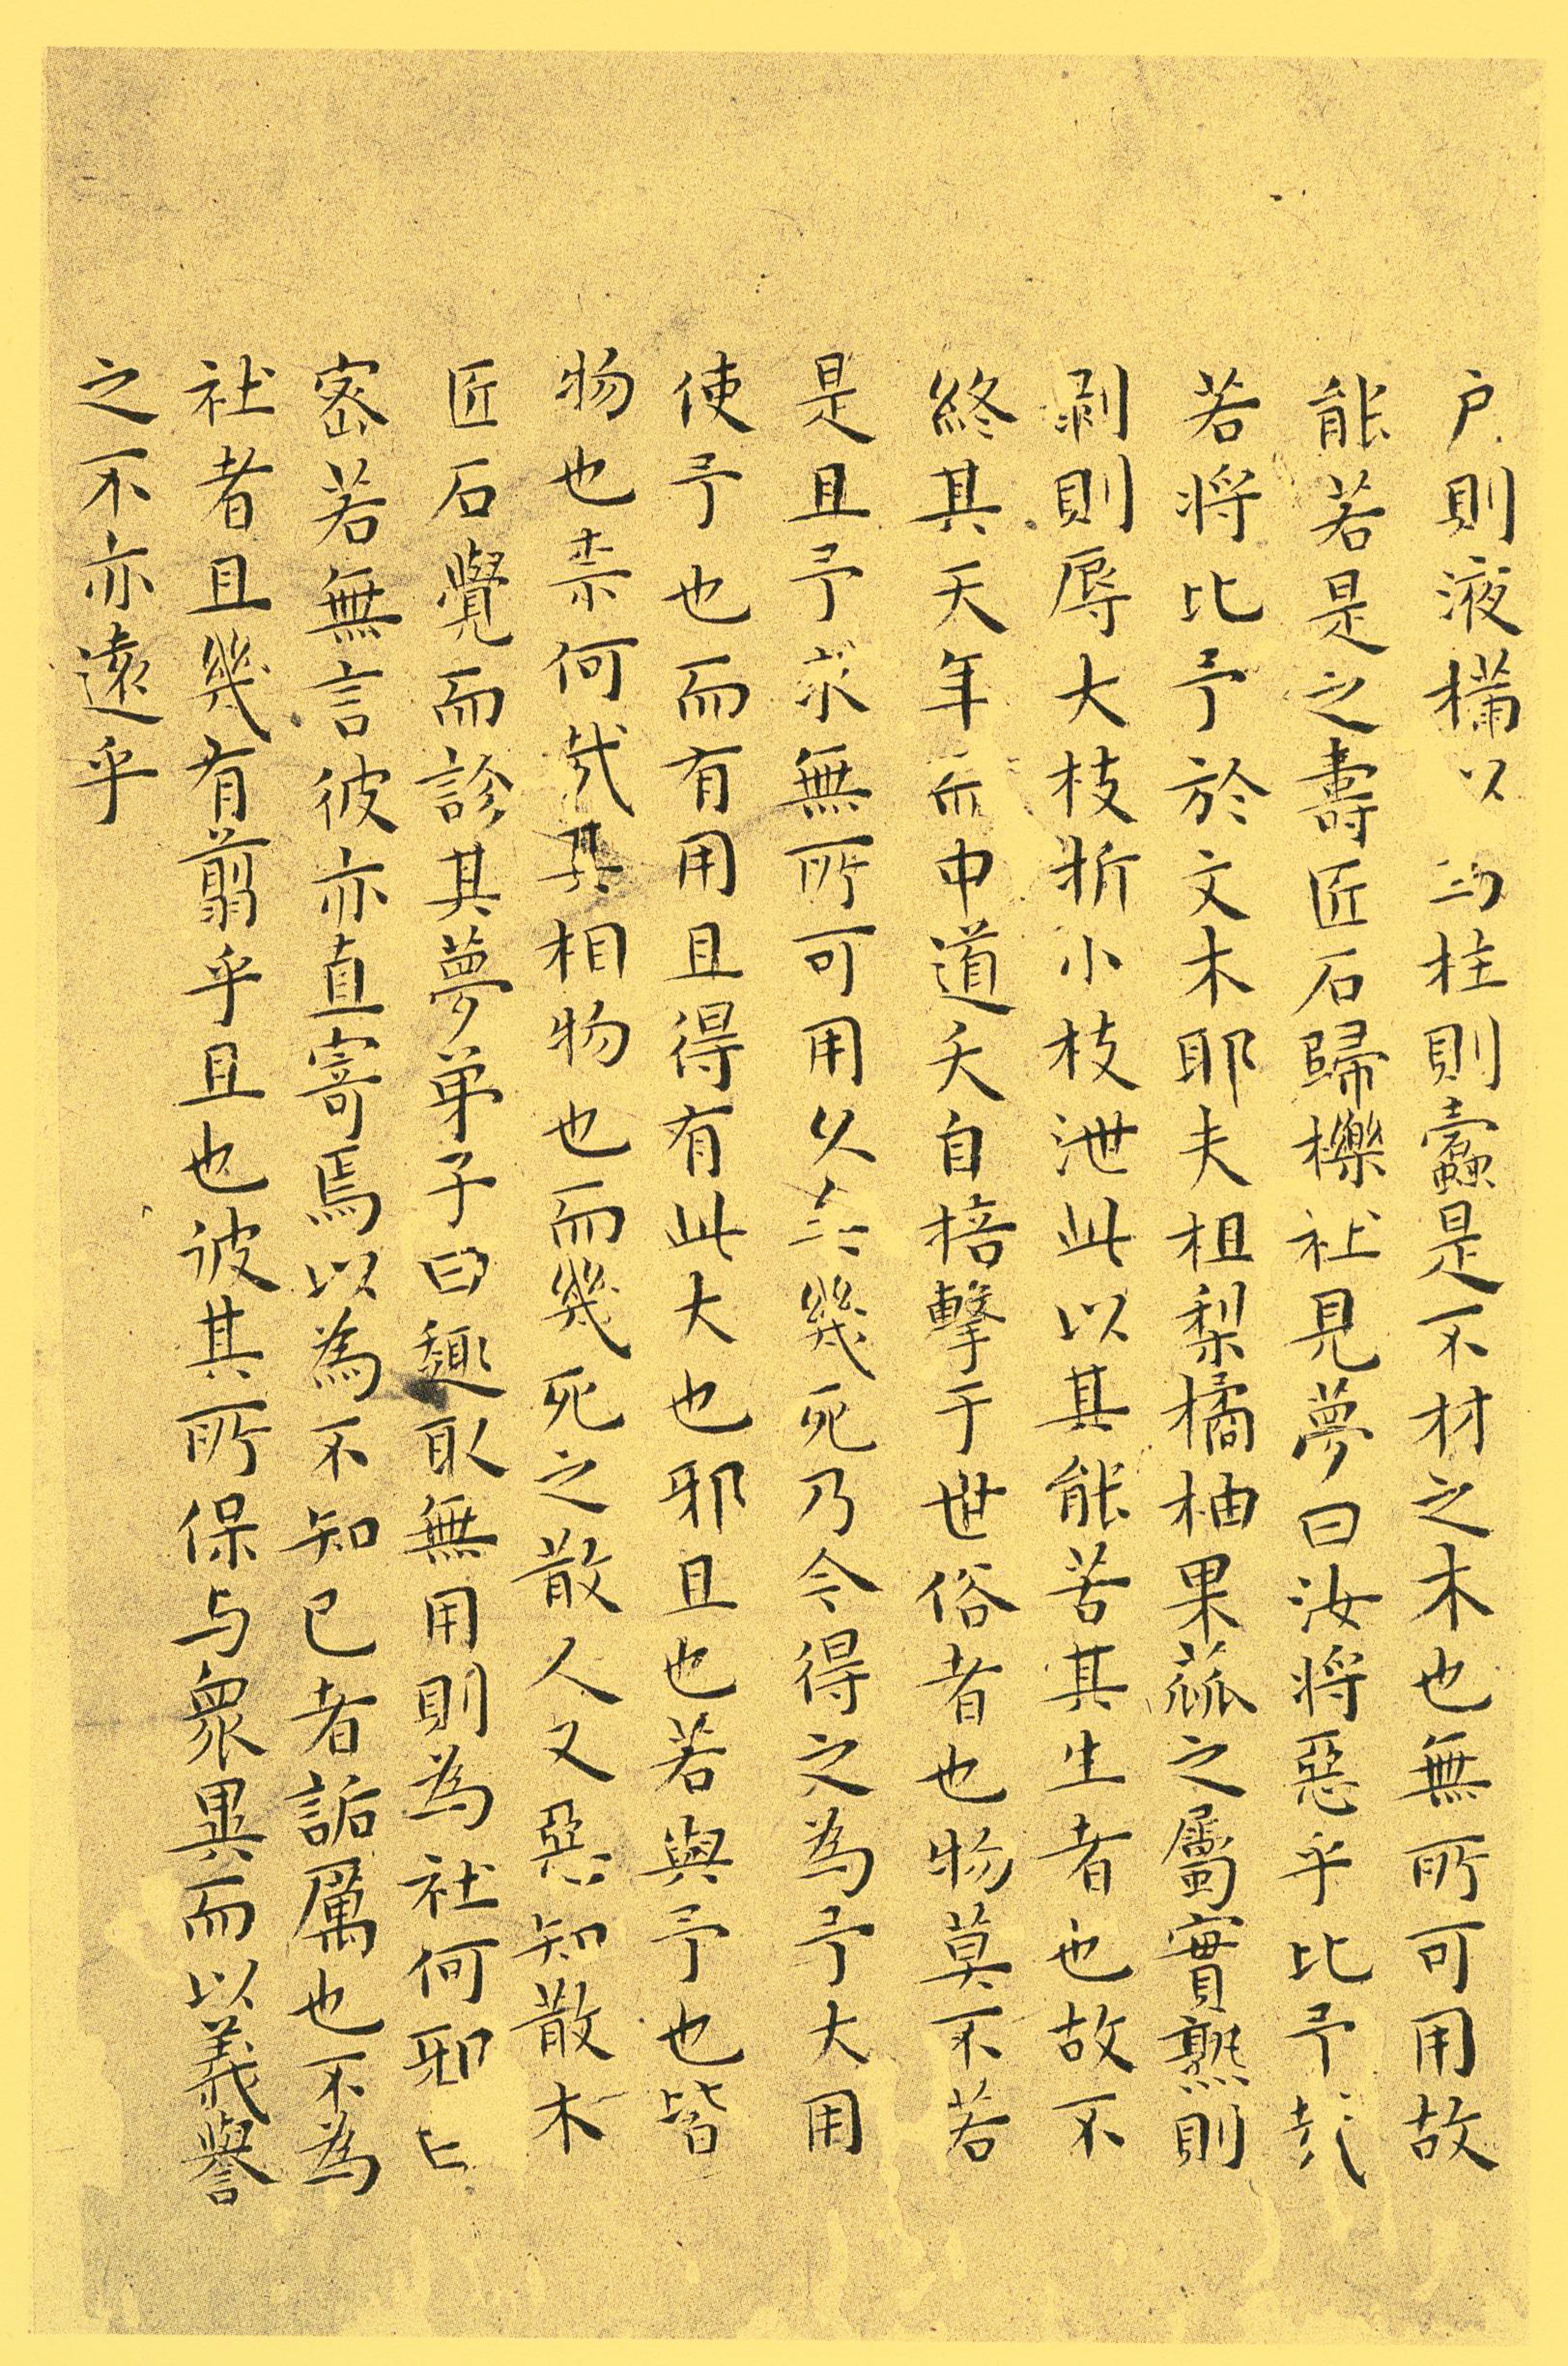 戶則液樠以為柱則蠹是不材之木也無所可用故
能若是之壽匠石歸櫟社見夢曰汝將惡乎比予哉
若將比予於文木耶夫柤梨橘柚果蓏之屬實熟則
剝則辱大枝折小枝泄此以其能苦其生者也故不
終其天年而中道夭自掊擊于世俗者也物莫不若
是且予求無所可用久矣幾死乃今得之為予大用
使予也而有用且得有此大也邪且也若與予也皆
物也柰何哉其相物也而幾死之散人又惡知散木
匠石覺而診其夢弟子曰趣取無用則為社何邪曰
密若無言彼亦直寄焉以為不知己者詬厲也不為
社者且幾有翦乎且也彼其所保与眾異而以義譽
之不亦遠乎